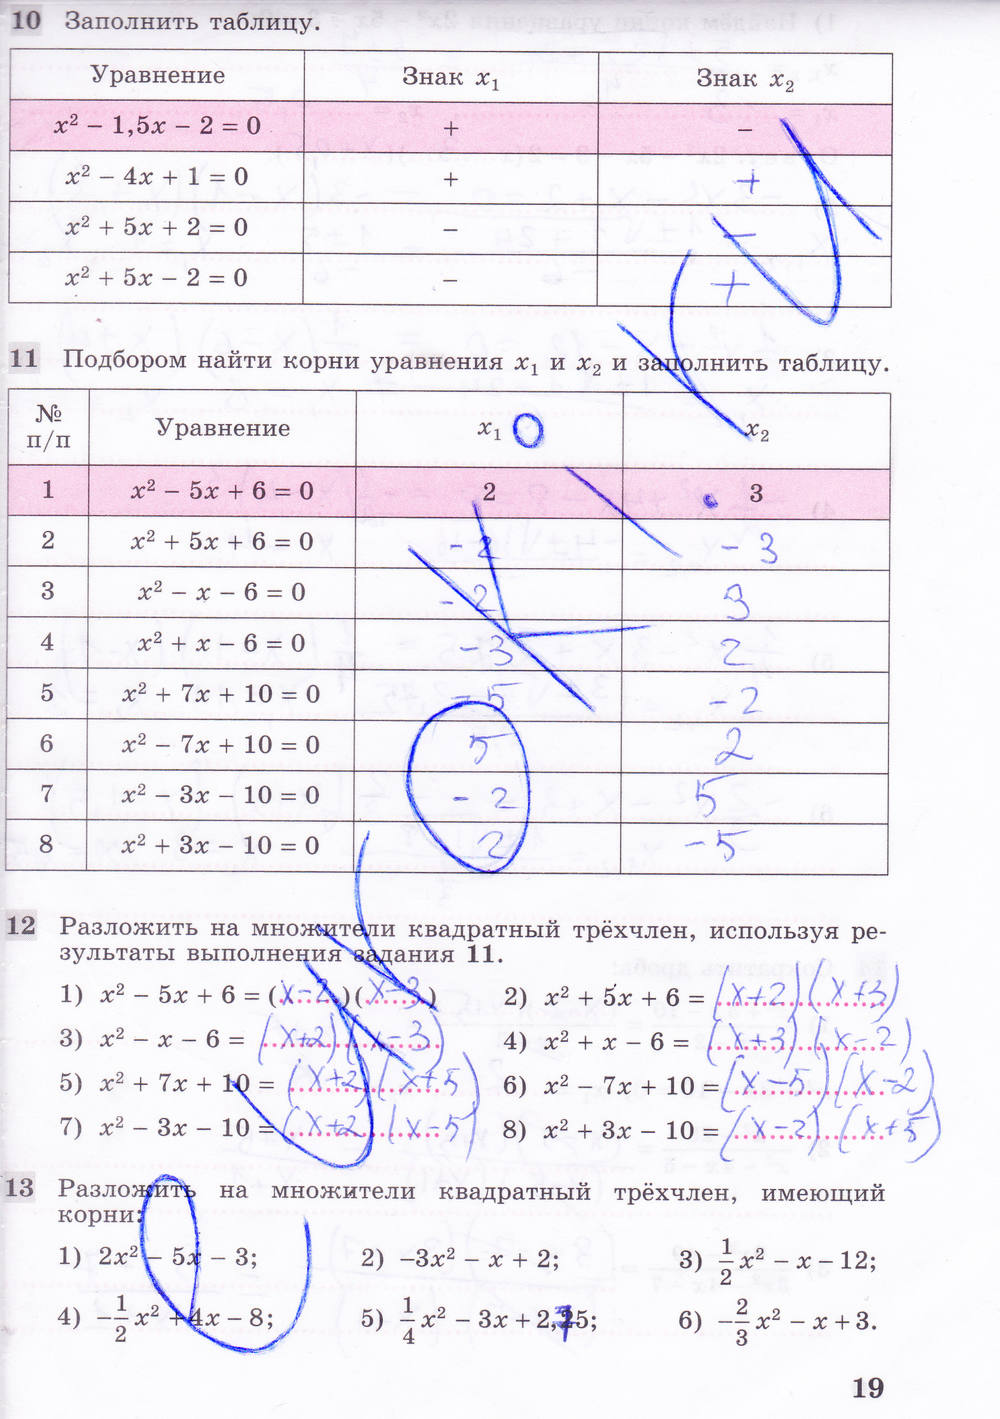 10 Заполнить таблицу.
Уравнение Знак x₁ Знак x₂
x² − 1,5x − 2 = 0 + −
x² − 4x + 1 = 0 + +
x² + 5x + 2 = 0 − −
x² + 5x − 2 = 0 − +
11 Подбором найти корни уравнения x₁ и x₂ и заполнить таблицу.
№ п/п Уравнение x₁ x₂
1 x² − 5x + 6 = 0 2 3
2 x² + 5x + 6 = 0 −2 −3
3 x² − x − 6 = 0 −2 3
4 x² + x − 6 = 0 −3 2
5 x² + 7x + 10 = 0 −5 −2
6 x² − 7x + 10 = 0 5 2
7 x² − 3x − 10 = 0 −2 5
8 x² + 3x − 10 = 0 2 −5
12 Разложить на множители квадратный трёхчлен, используя ре-
зультаты выполнения задания 11.
1) x² − 5x + 6 = (x−2)(x−3) 2) x² + 5x + 6 = (x+2)(x+3)
3) x² − x − 6 = (x+2)(x−3) 4) x² + x − 6 = (x+3)(x−2)
5) x² + 7x + 10 = (x+2)(x+5) 6) x² − 7x + 10 = (x−5)(x−2)
7) x² − 3x − 10 = (x+2)(x−5) 8) x² + 3x − 10 = (x−2)(x+5)
13 Разложить на множители квадратный трёхчлен, имеющий
корни:
1) 2x² − 5x − 3; 2) −3x² − x + 2; 3) 1/2 x² − x − 12;
4) −1/2 x² + 4x − 8; 5) 1/4 x² − 3x + 2,75; 6) −2/3 x² − x + 3.
19